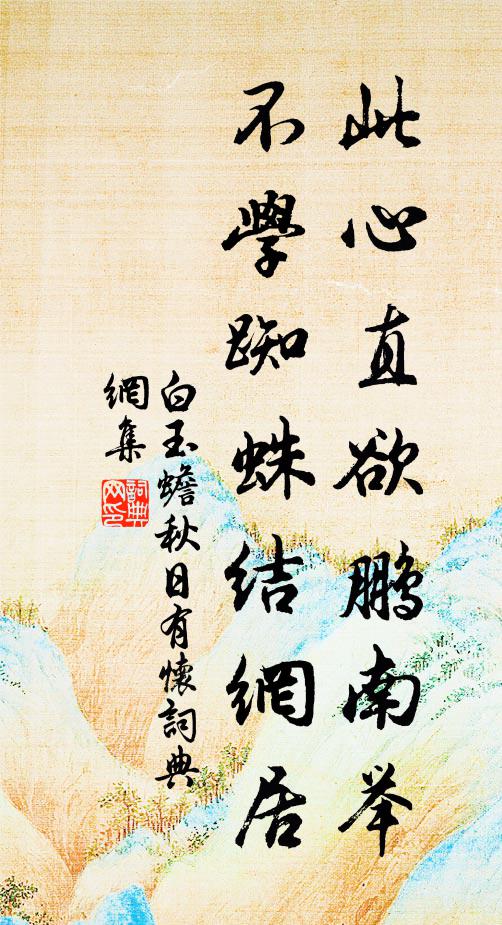 此心直欲鹏南举
不學蜘蛛结網居
白玉蟾秋日有懷詞典
網集
詞典
网印